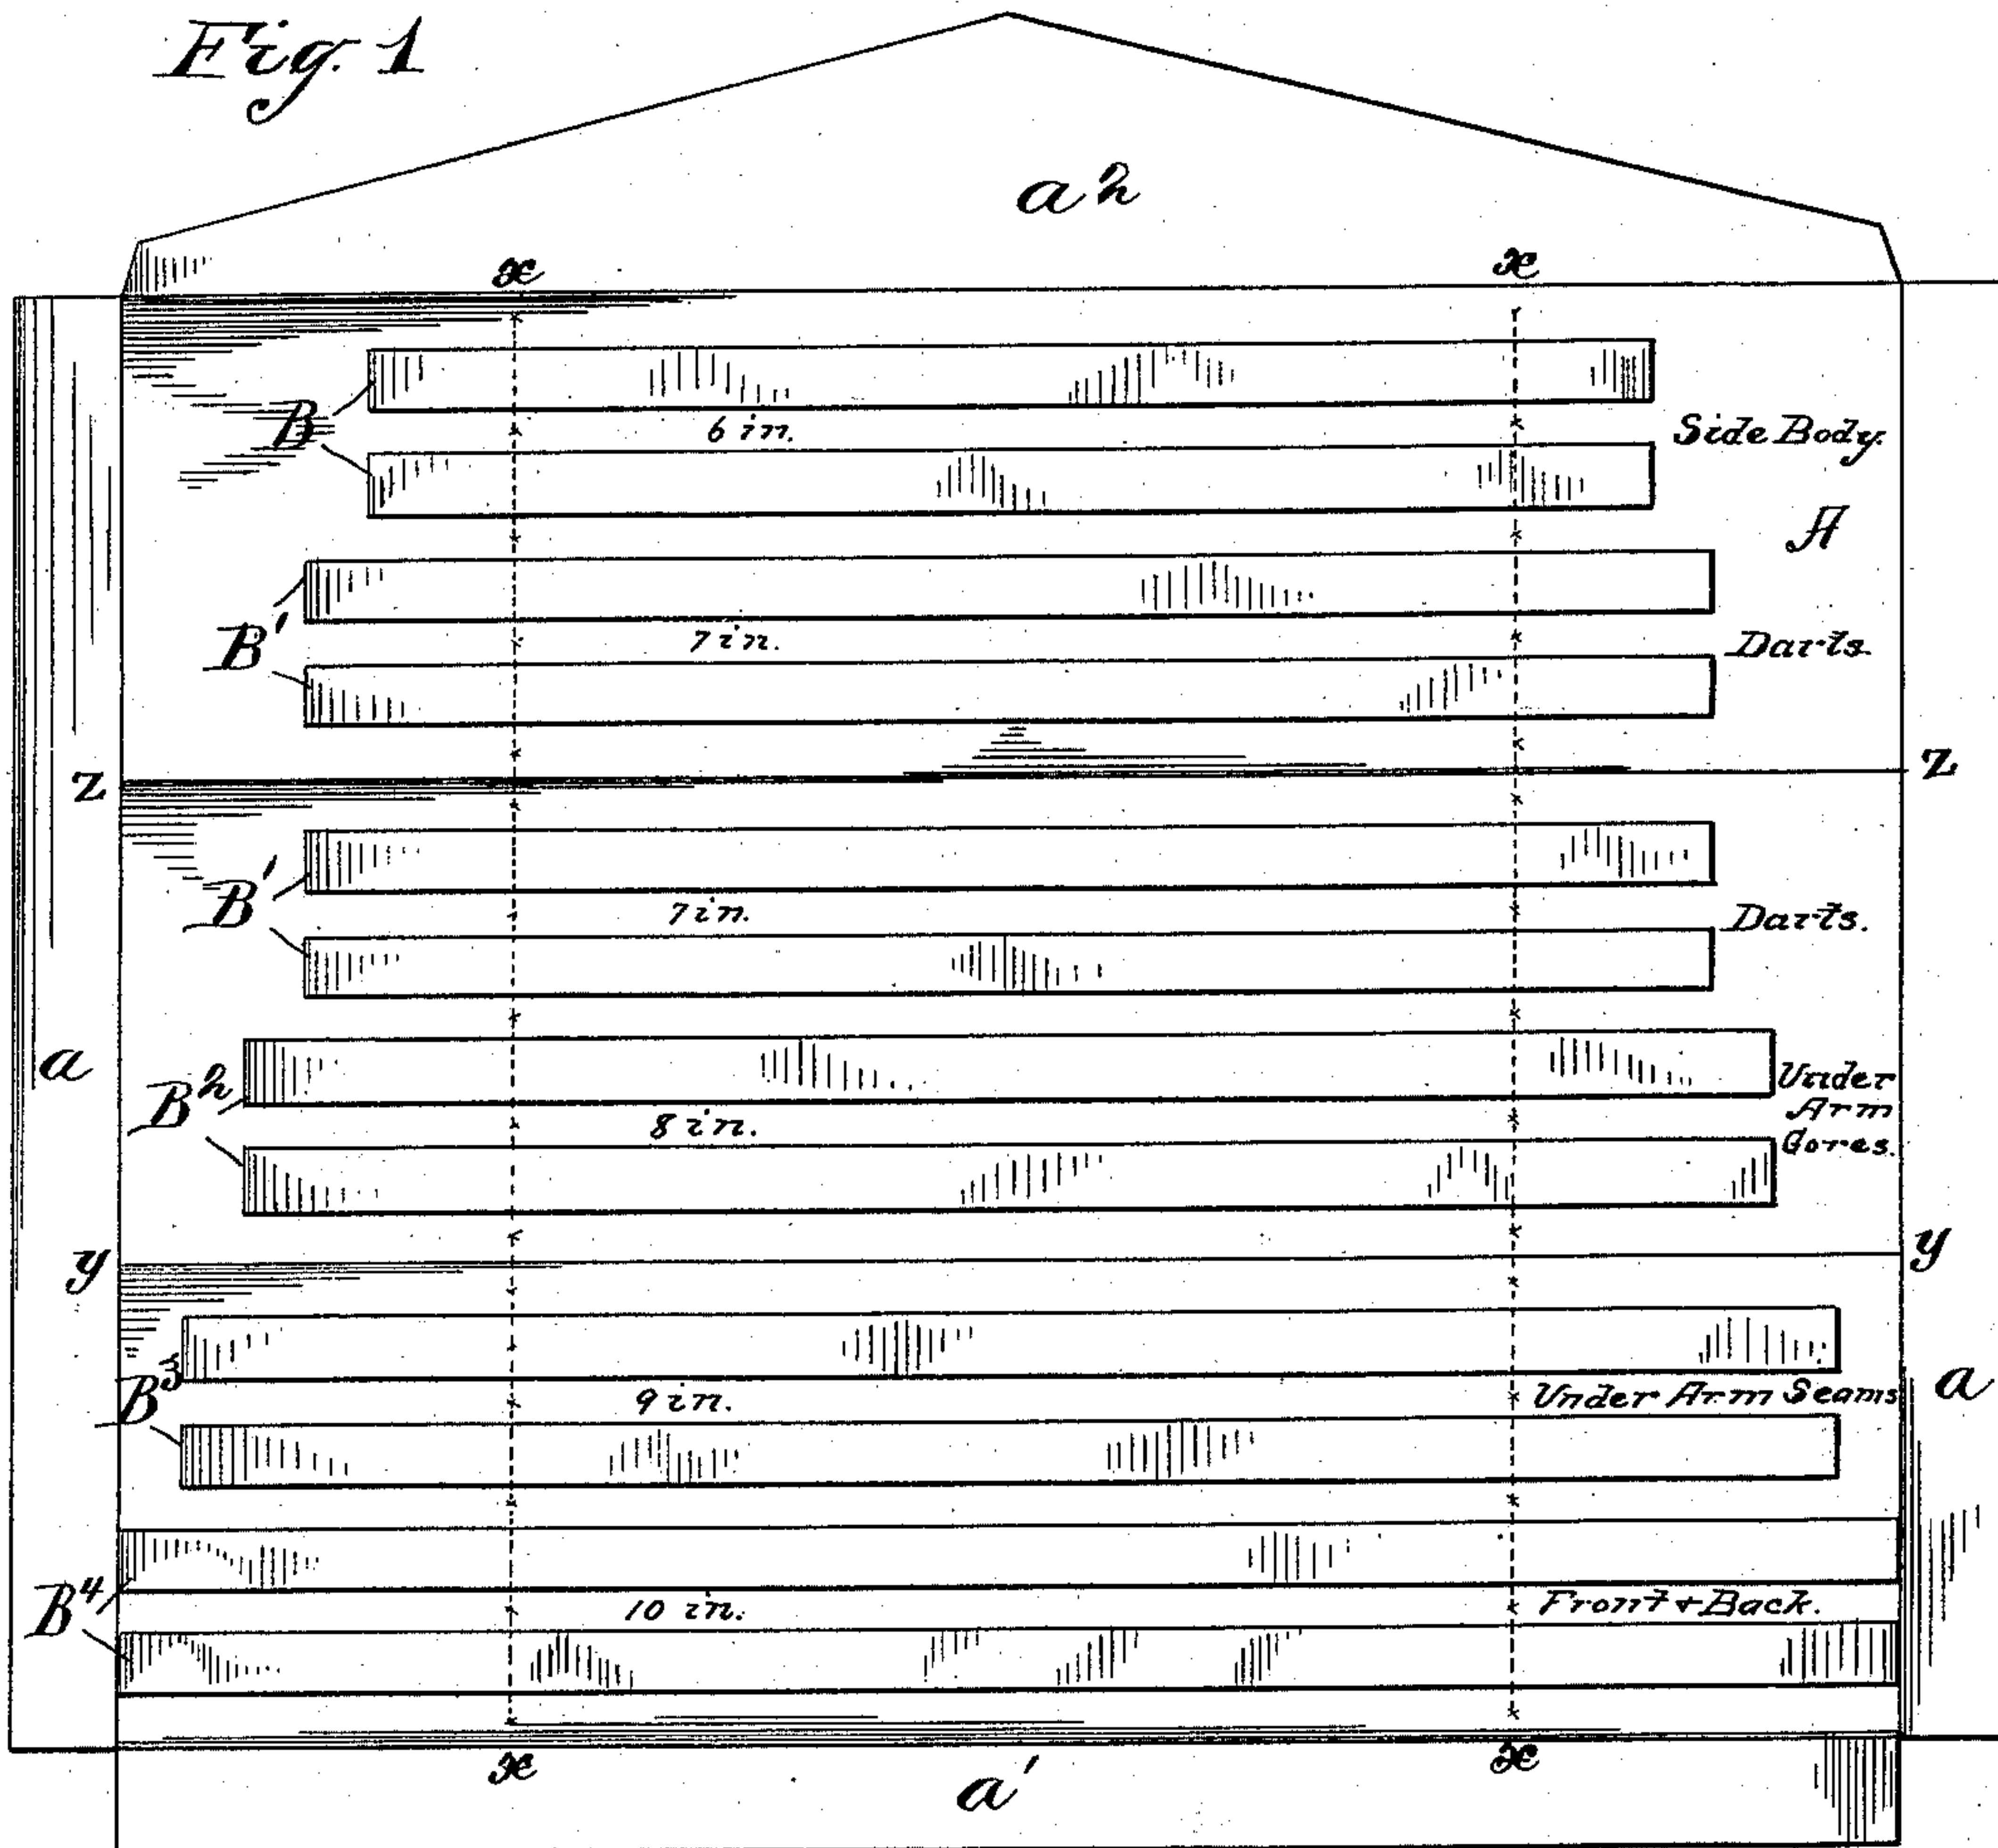 Fig. 1
a²
x x
B 6 in. Side Body.
A
B' 7 in. Darts.
z z
B' 7 in. Darts.
a
B² 8 in. Under
Arm
Gores.
y y
B³ 9 in. Under Arm Seams
a
B⁴ 10 in. Front & Back.
x x
a'